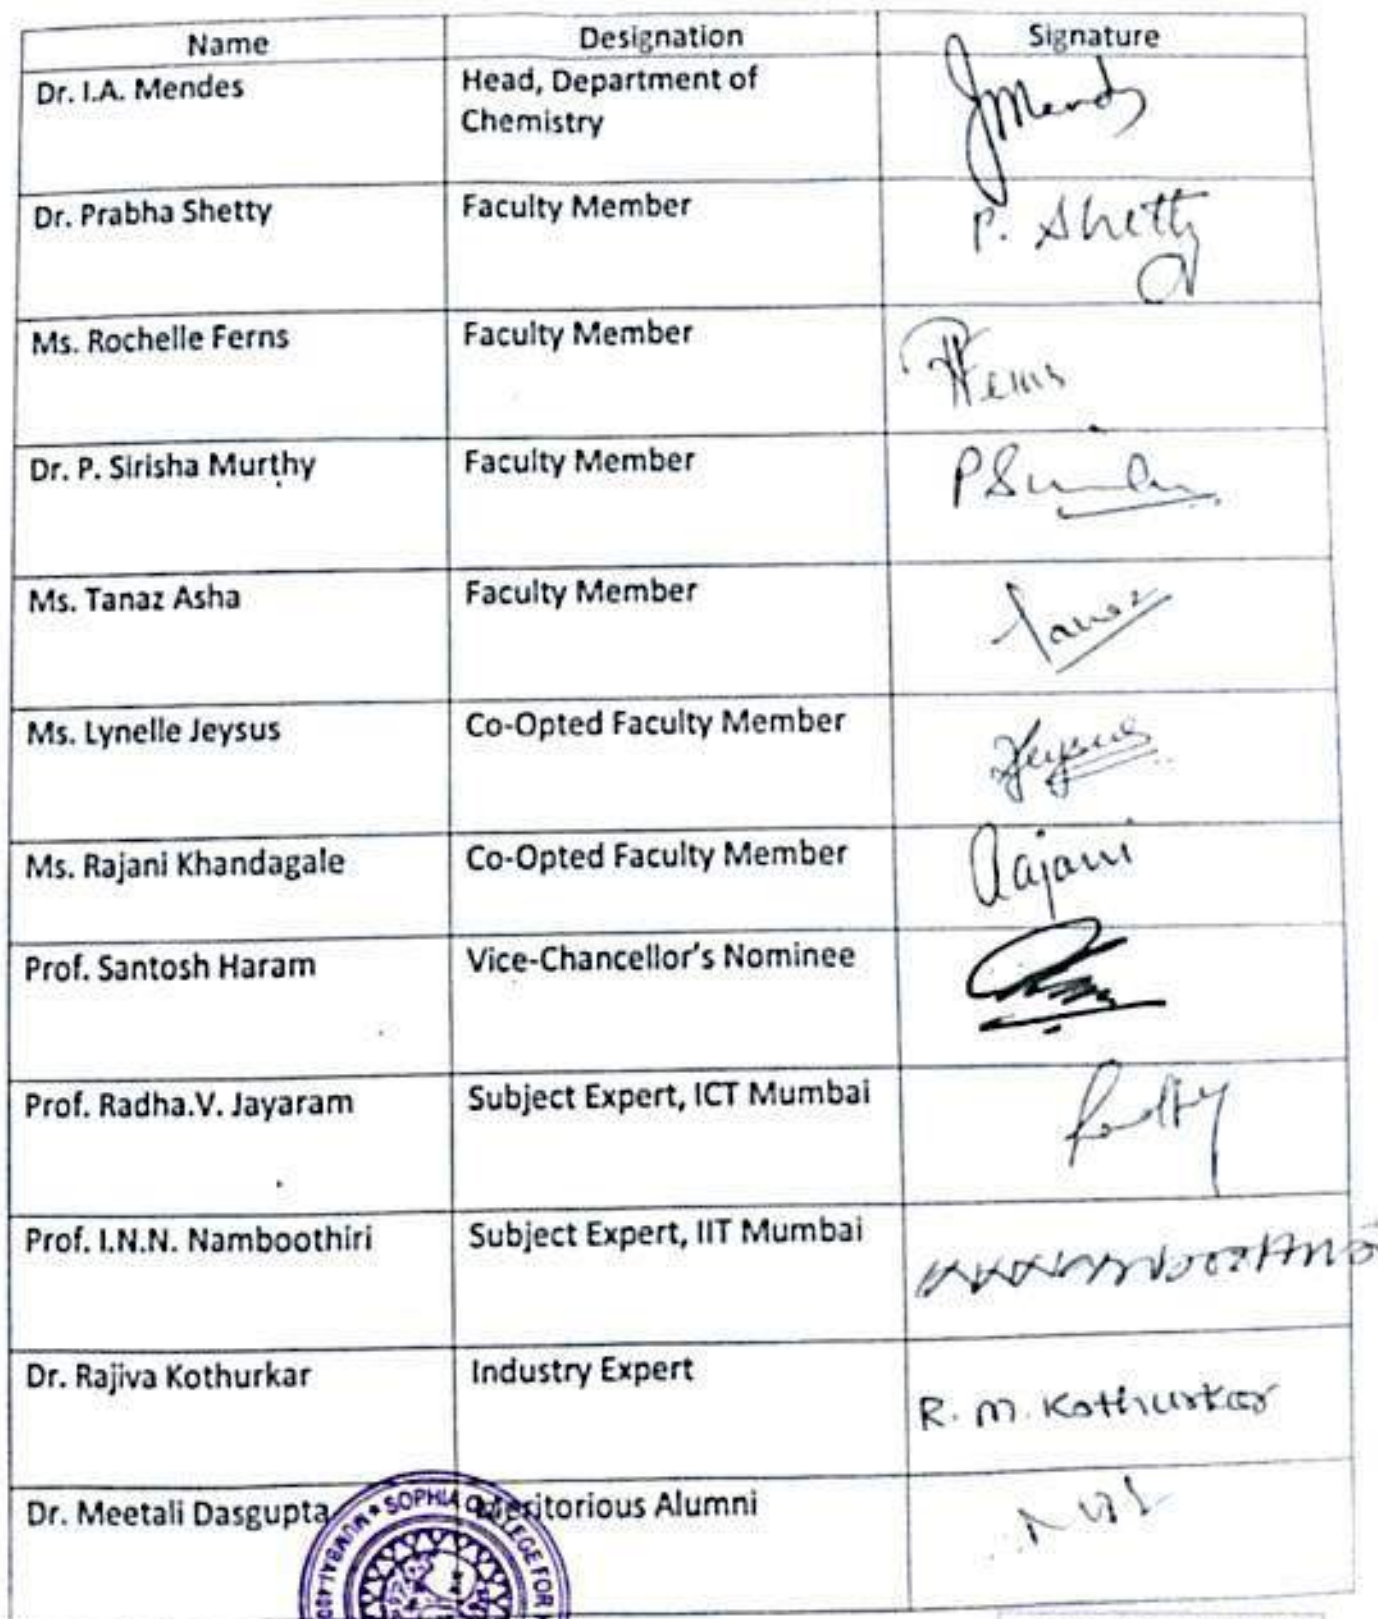 Name Designation Signature
Dr. I.A. Mendes Head, Department of
Chemistry
Dr. Prabha Shetty Faculty Member P. Shetty
Ms. Rochelle Ferns Faculty Member
Dr. P. Sirisha Murthy Faculty Member
Ms. Tanaz Asha Faculty Member Tanaz
Ms. Lynelle Jeysus Co-Opted Faculty Member Jeysus
Ms. Rajani Khandagale Co-Opted Faculty Member Rajani
Prof. Santosh Haram Vice-Chancellor's Nominee
Prof. Radha.V. Jayaram Subject Expert, ICT Mumbai
Prof. I.N.N. Namboothiri Subject Expert, IIT Mumbai
Dr. Rajiva Kothurkar Industry Expert R. M. Kothurkar
Dr. Meetali Dasgupta Meritorious Alumni
MUMBAI-400 * SOPHIA COLLEGE FOR